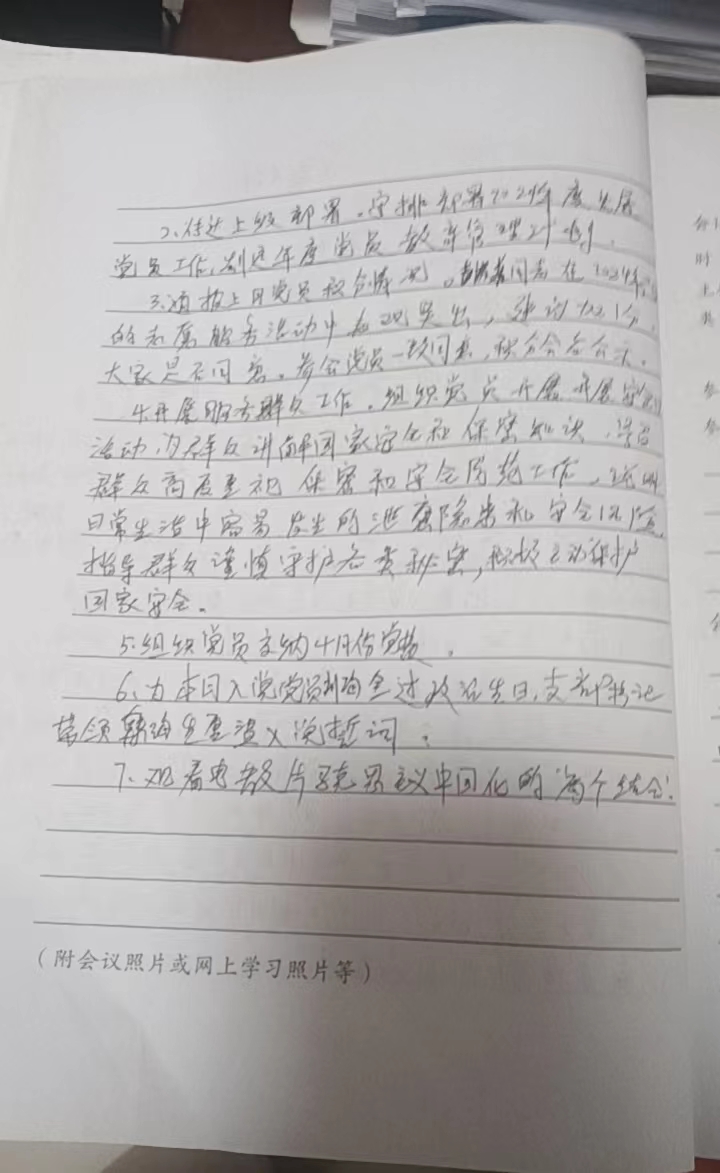 2、传达上级部署。安排部署2024年度发展
党员工作,制定年度党员教育管理计划。
3.通报上月党员积分情况。同志在2024年
的志愿服务活动中表现突出,建议加1分,
大家是否同意。参会党员一致同意,积分会后公示。
4.开展服务群众工作。组织党员开展开展
活动,为群众讲解国家安全和保密知识,
群众高度重视保密和安全防范工作,说明
日常生活中容易发生的泄密隐患和安全风险,
指导群众谨慎守护各类秘密,积极主动维护
国家安全。
5.组织党员交纳4月份党费。
6、为本月入党党员过政治生日,支部书记
带领重温入党誓词。
7、观看电教片马克思主义中国化的"两个结合"
(附会议照片或网上学习照片等)